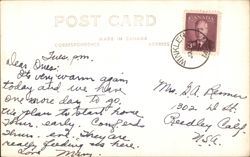 POST CARD
MADE IN CANADA
CORRESPONDENCE
ADDRESS
CANADA
WINKLER
Tues. pm.
Dear Ones:
It's very warm again
today and we have
one more day to go.
We plan to start home
Thur. early.
They are
really feeding us here.
Love Mum.
Mrs.
1302 St
Reedley Calif
USA.